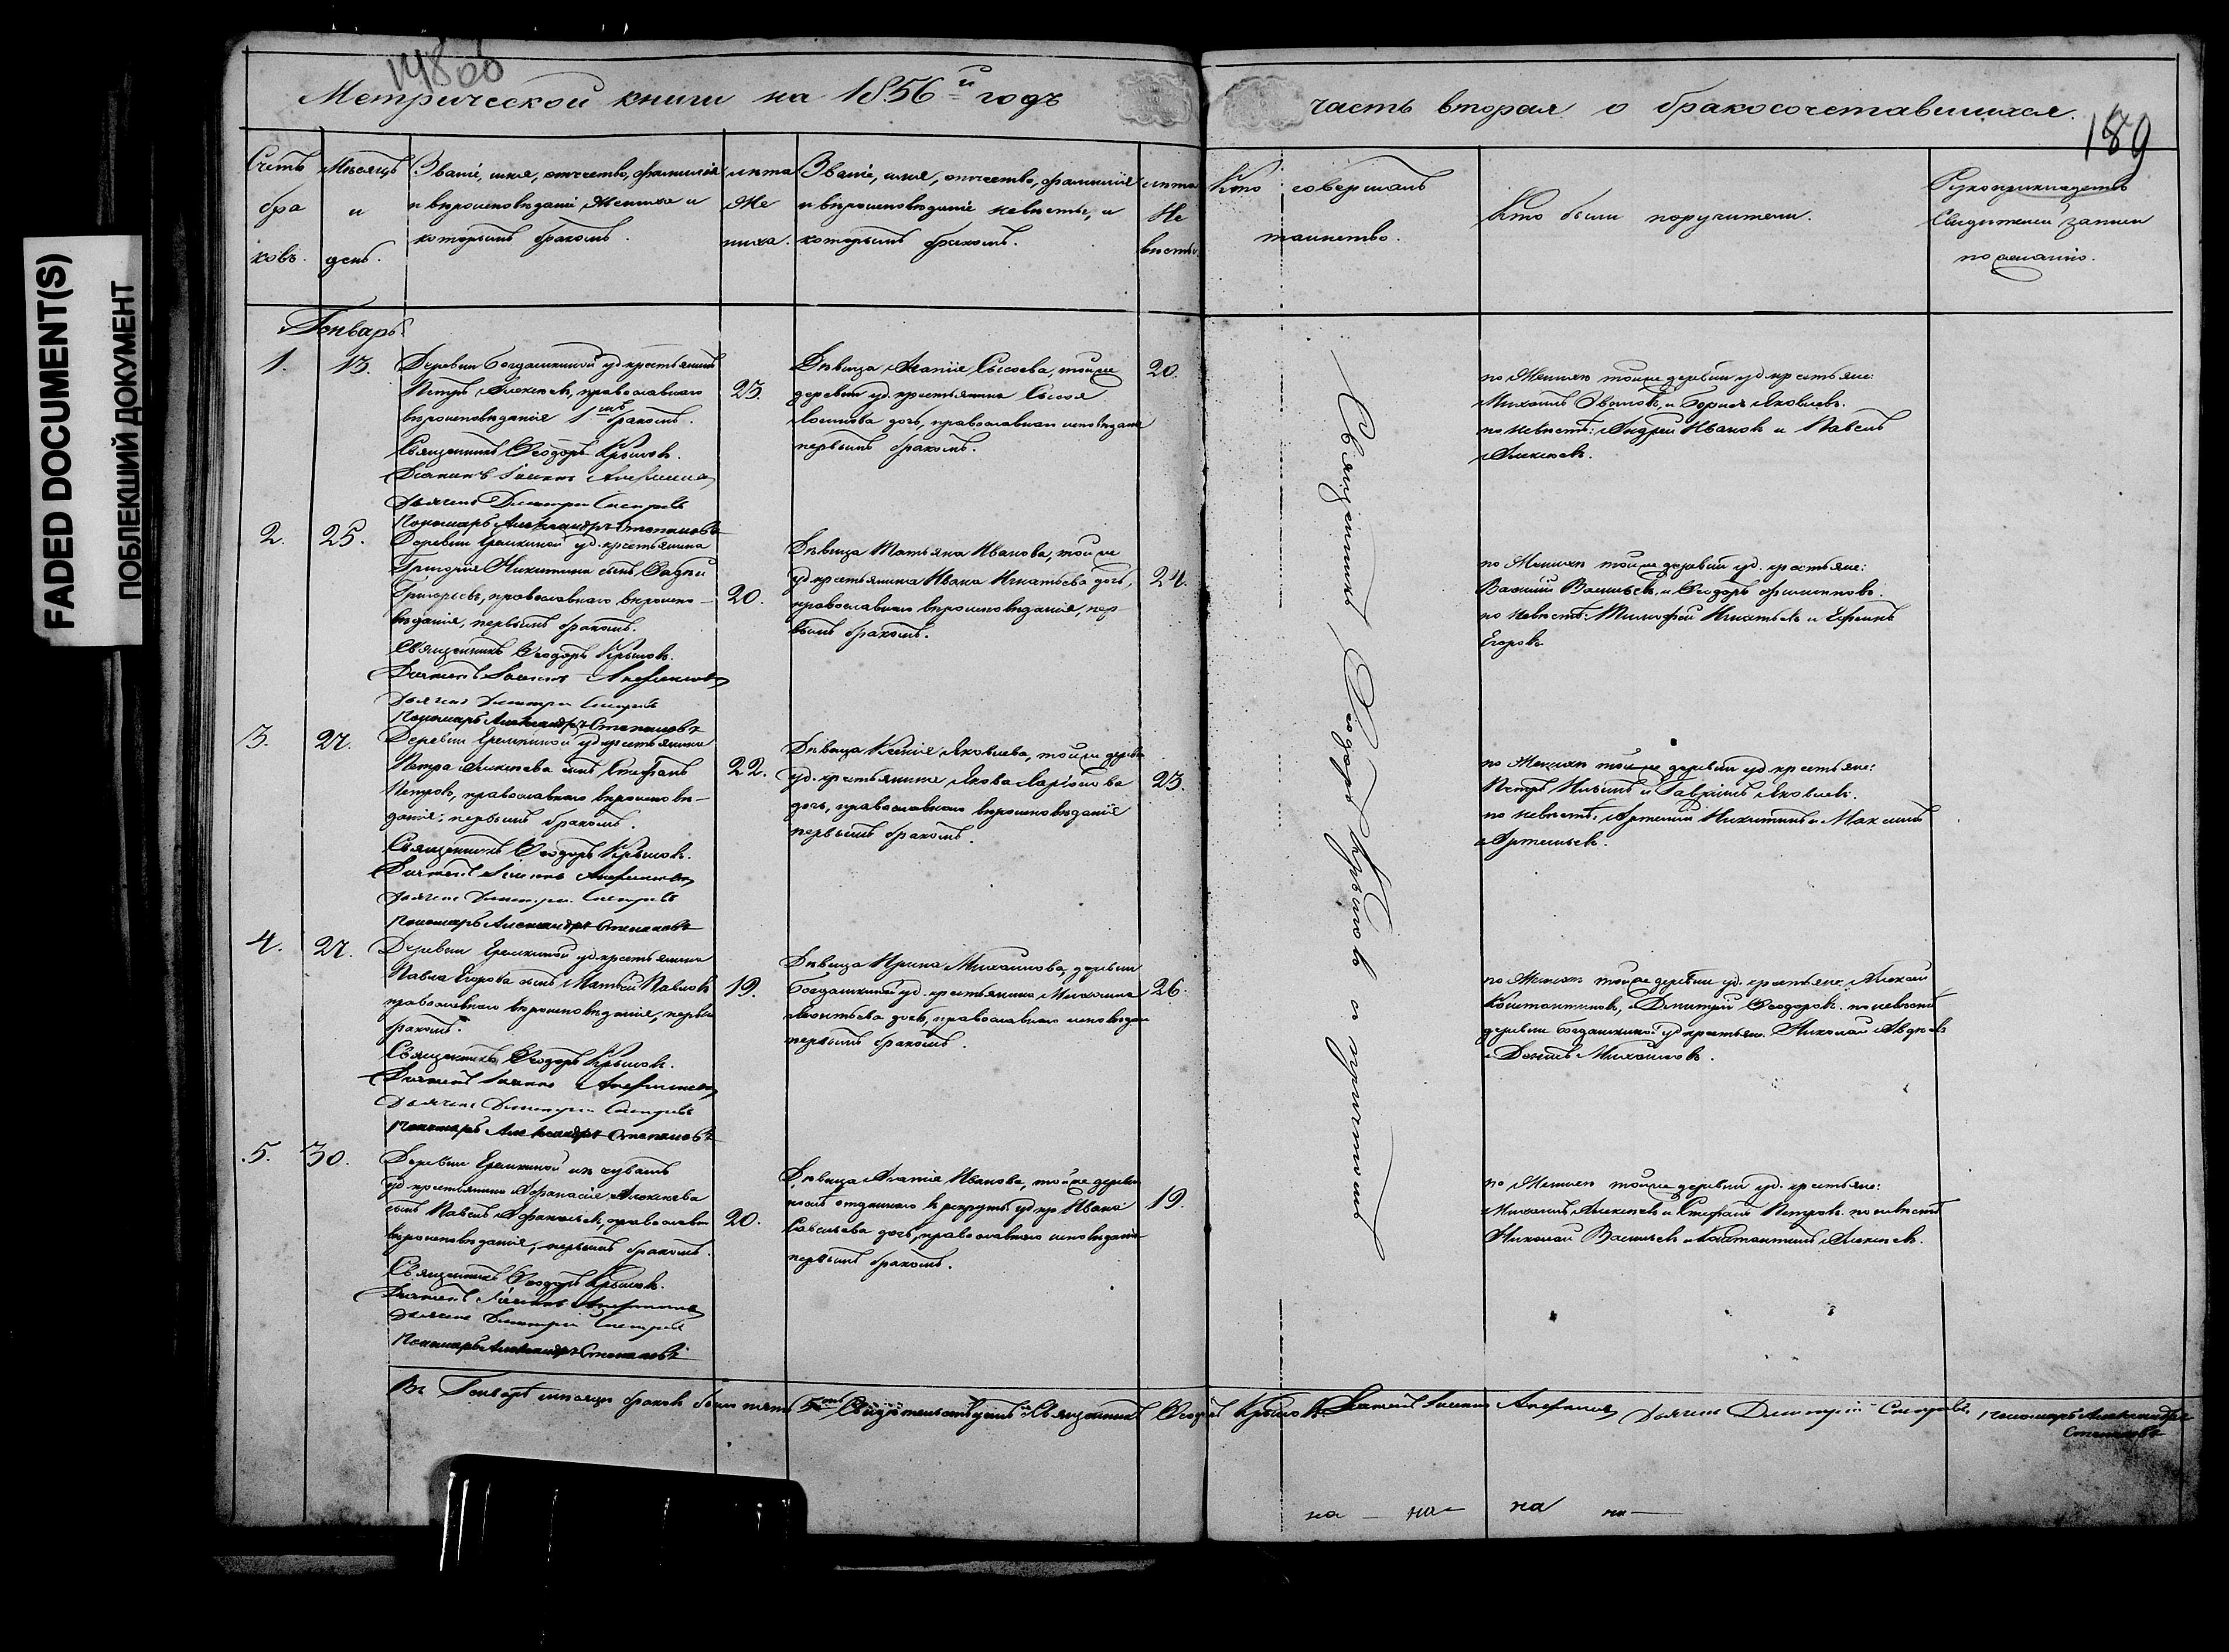 FADED DOCUMENT(S)
ПОБЛЕКШИЙ ДОКУМЕНТ
Метрической книги на 1856й годъ
часть вторая о бракосочетавшихся.
189
Счетъ браковъ.
Мѣсяцъ и день.
Званіе, имя, отчество, фамилія
и вѣроисповѣданіе жениха и
которымъ бракомъ.
лѣта
Же
ниха.
Званіе, имя, отчество, фамилія
и вѣроисповѣданіе невѣсты, и
которымъ бракомъ.
лѣта
Не
вѣсты.
Кто совершалъ
таинство.
Кто были поручители.
Рукоприкладство
свидѣтелей записи
по желанію.
Генварь.
1. 13.
Деревни Богдашкиной уд. крестьянинъ
Петръ Алексѣевъ, православнаго
вѣроисповѣданія 1мъ бракомъ.
Священникъ Ѳеодоръ Крыловъ.
Дьячекъ Димитрій
Пономарь Александръ Степановъ
23.
Дѣвица Агапія Сысоева, тойже
деревни уд. крестьянина Сысоя
дочь, православнаго исповѣданія
первымъ бракомъ.
20.
по Женихѣ тойже деревни уд. крестьяне:
Михаилъ Ивановъ, и Борисъ Яковлевъ.
по невѣстѣ: Андрей Ивановъ и Павелъ
Алексѣевъ.
2. 25.
Деревни Еремкиной уд. крестьянина
Григорія Никитина сынъ
Григорьевъ, православнаго вѣроиспо-
вѣданія, первымъ бракомъ.
Священникъ Ѳеодоръ Крыловъ.
Дьячекъ Димитрій
Пономарь Александръ Степановъ
20.
Дѣвица Татьяна Иванова, тойже
уд. крестьянина Ивана Игнатьева дочь,
православнаго вѣроисповѣданія, пер-
вымъ бракомъ.
24.
по Женихѣ тойже деревни уд. крестьяне:
Василій Васильевъ, и Ѳеодоръ Филипповъ.
по невѣстѣ: Тимофей Игнатьевъ и Ефремъ
Егоровъ.
3. 27.
Деревни Еремкиной уд. крестьянина
Петра Алексѣева сынъ Стефанъ
Петровъ, православнаго вѣроисповѣ-
данія, первымъ бракомъ.
Священникъ Ѳеодоръ Крыловъ.
Дьячекъ Димитрій
Пономарь Александръ Степановъ
22.
Дѣвица Ксенія Яковлева, тойже деревни
уд. крестьянина Якова Ларіонова
дочь, православнаго вѣроисповѣданія
первымъ бракомъ.
23.
по Женихѣ тойже деревни уд. крестьяне:
Петръ Ильинъ и Гавріилъ Яковлевъ.
по невѣстѣ: Артемій Никитинъ и Максимъ
Артемьевъ.
4. 27.
Деревни Еремкиной уд. крестьянина
Павла Егорова сынъ Матвей Павловъ
православнаго вѣроисповѣданія, первымъ
бракомъ.
Священникъ Ѳеодоръ Крыловъ.
Дьячекъ Димитрій
Пономарь Александръ Степановъ
19.
Дѣвица Ирина Михайлова, деревни
Богдашкиной уд. крестьянина Михаила
Леонтьева дочь, православнаго исповѣдан.
первымъ бракомъ.
26.
по Женихѣ тойже деревни уд. крестьяне Алексей
Константиновъ, и Димитрій Ѳеодоровъ. по невѣстѣ
деревни Богдашкиной уд. крестьян. Николай Авдѣевъ
и Данилъ Михайловъ.
5. 30.
Деревни Еремкиной изъ чувашъ
уд. крестьянина Афанасія Алексѣева
сынъ Павелъ Афанасьевъ, православн.
вѣроисповѣданія, первымъ бракомъ.
Священникъ Ѳеодоръ Крыловъ.
Дьячекъ Димитрій
Пономарь Александръ Степановъ
20.
Дѣвица Агапія Иванова, тойже деревни
отданнаго въ рекруты уд. кр. Ивана
Савельева дочь, православнаго исповѣданія
первымъ бракомъ.
19.
по Женихѣ тойже деревни уд. крестьяне:
Михаилъ Алексѣевъ и Стефанъ Петровъ. по невѣстѣ
Николай Васильевъ и Константинъ Алексѣевъ.
Священникъ Ѳеодоръ Крыловъ съ причтомъ
Въ Генварѣ мѣсяцѣ браковъ было пять 5ть Свидѣтельствуемъ: Священникъ Ѳеодоръ Крыловъ Дьячекъ Димитрій Пономарь Александръ
Степановъ
на — на — на на —